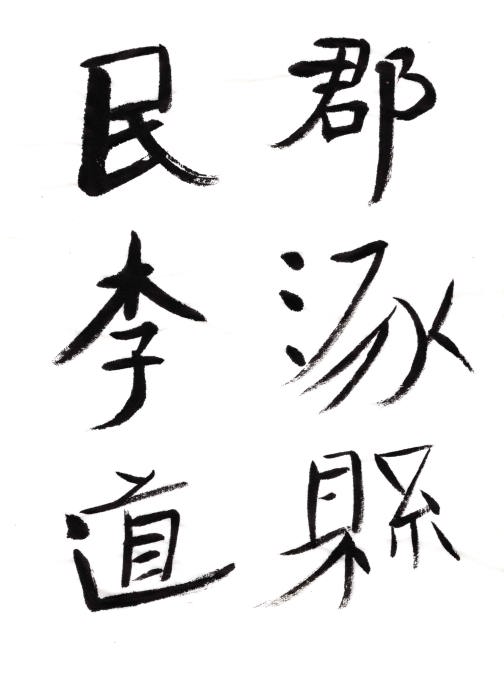 郡涿縣
民李道